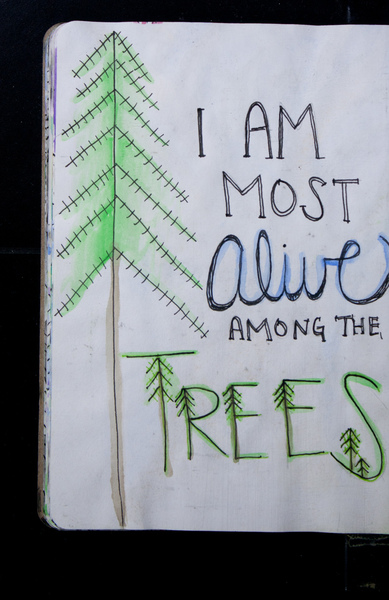 I AM
MOST
alive
AMONG THE
TREES